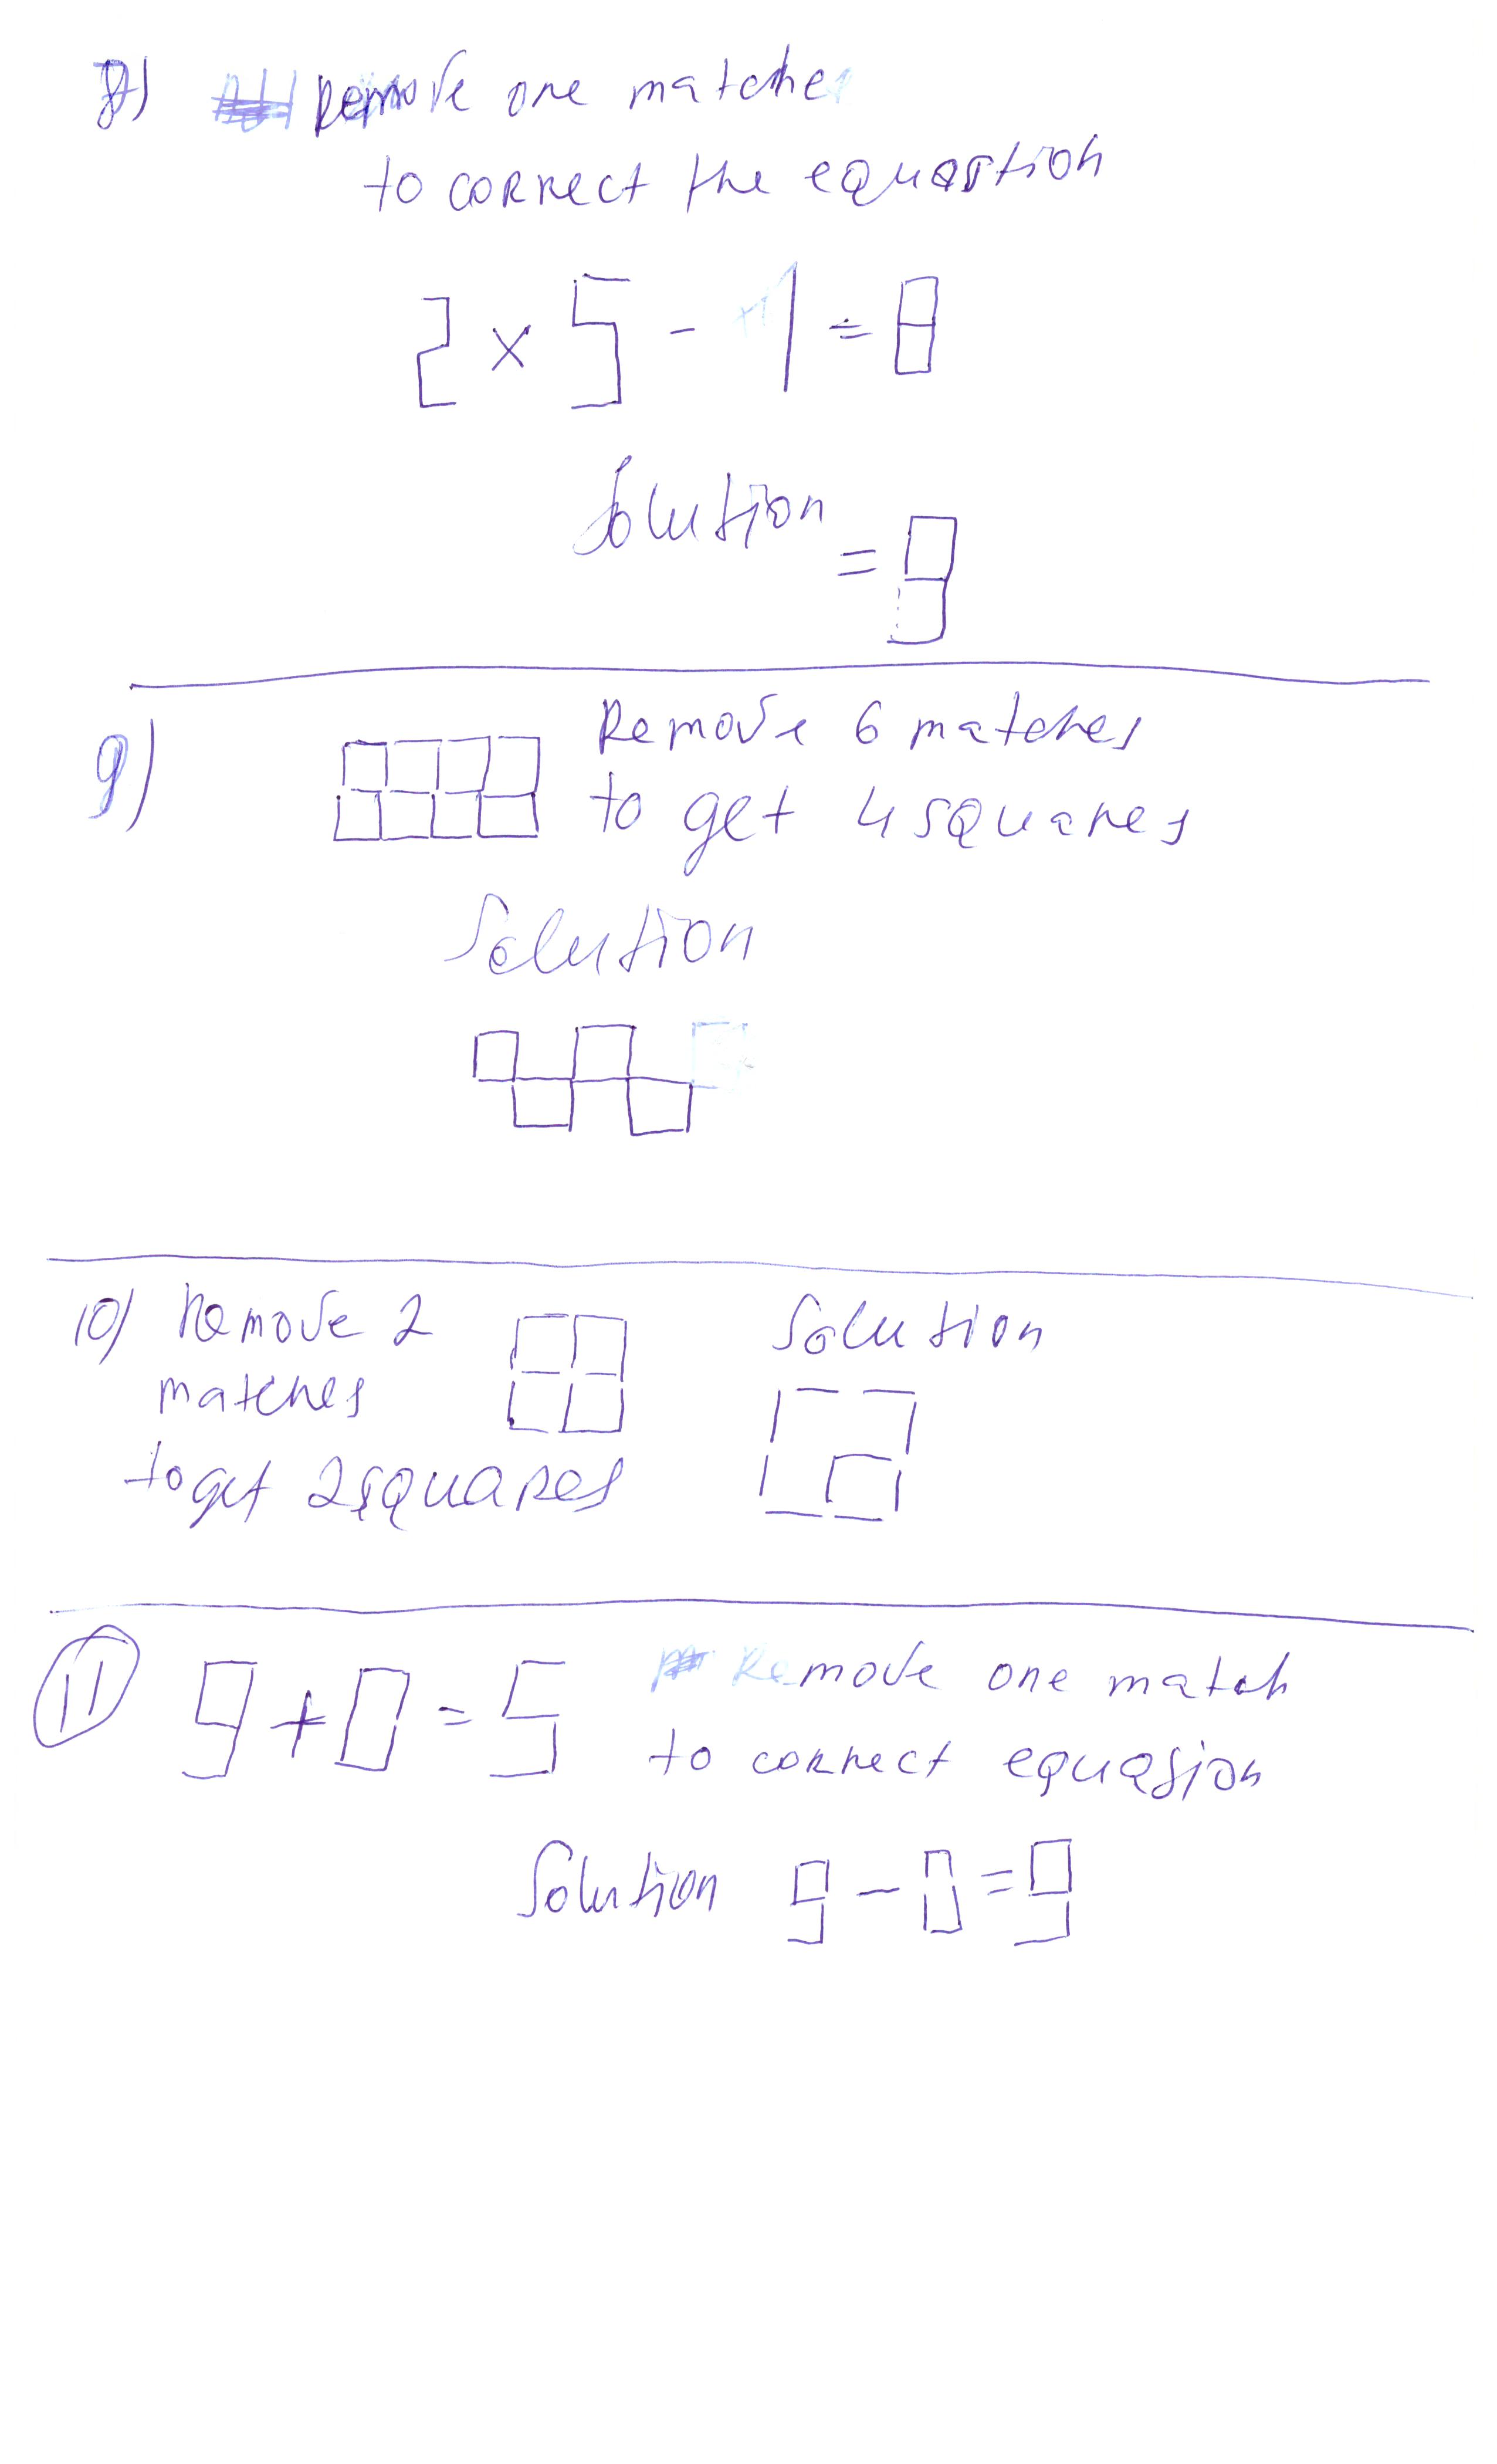 8) Remove one matches
to correct the equastion
2 x 5 - 1 = 8
Solution
= 9
9) Remove 6 matches
to get 4 squares
Solution
10) Remove 2
matches
to get 2 squares
Solution
11 9 + 0 = 5 Remove one match
to correct equasion
Solution 9 - 0 = 9